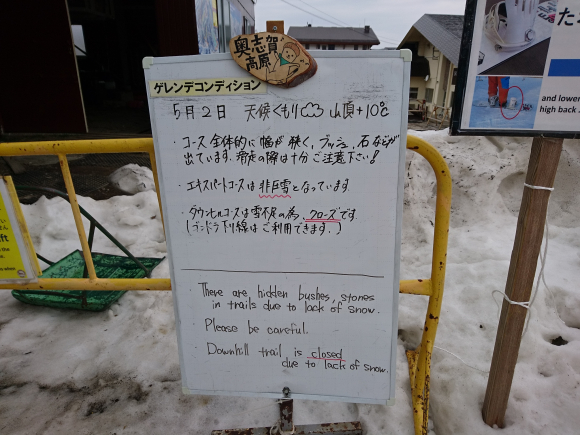 奥志賀
高原
ゲレンデコンディション
5月2日 天候くもり 山頂+10℃
・コース全体的に幅が狭く、ブッシュ、石などが
出ています。滑走の際は十分ご注意下さい!
・エキスパートコースは非圧雪となっています
・ダウンヒルコースは雪不足の為、クローズです
(ゴンドラ下り線はご利用できます。)
There are hidden bushes, stones
in trails due to lack of snow.
Please be careful.
Downhill trail is closed
due to lack of snow.
た
and lower
high back